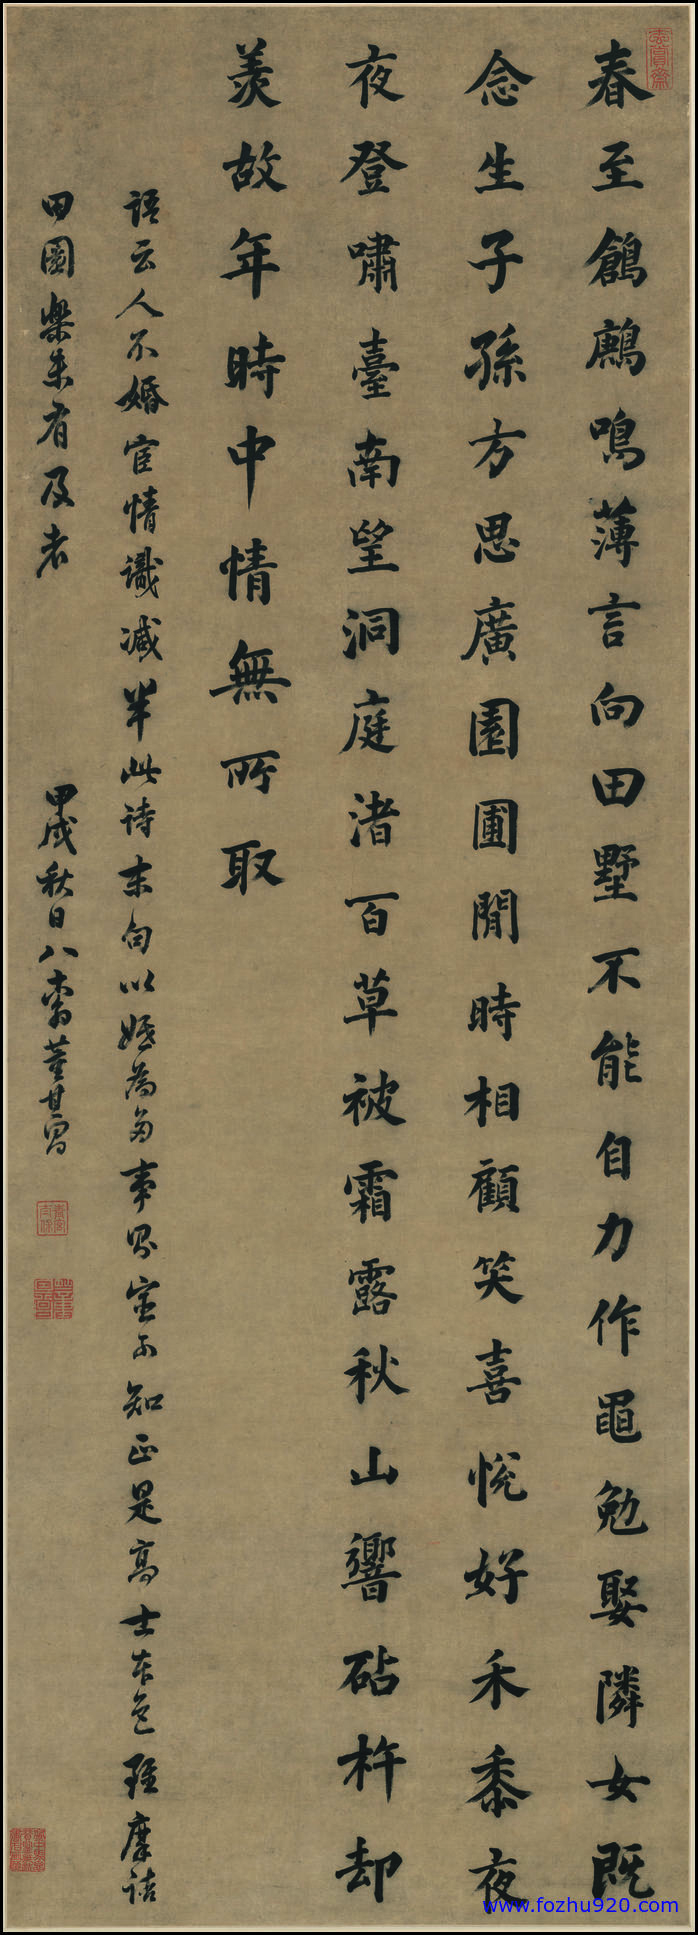 玄賞齋
春至鶬鶊鳴薄言向田墅不能自力作黽勉娶隣女既
念生子孫方思廣園圃閒時相顧笑喜悅好禾黍夜
夜登嘯臺南望洞庭渚百草被霜露秋山響砧杵却
羨故年時中情無所取
語云人不婚宦情識減半此詩末句以婚為多事則宦可知正是高士本色雖摩詰
田園樂未有及者
甲戌秋日八翁董其昌
青宮太保
www.fozhu920.com